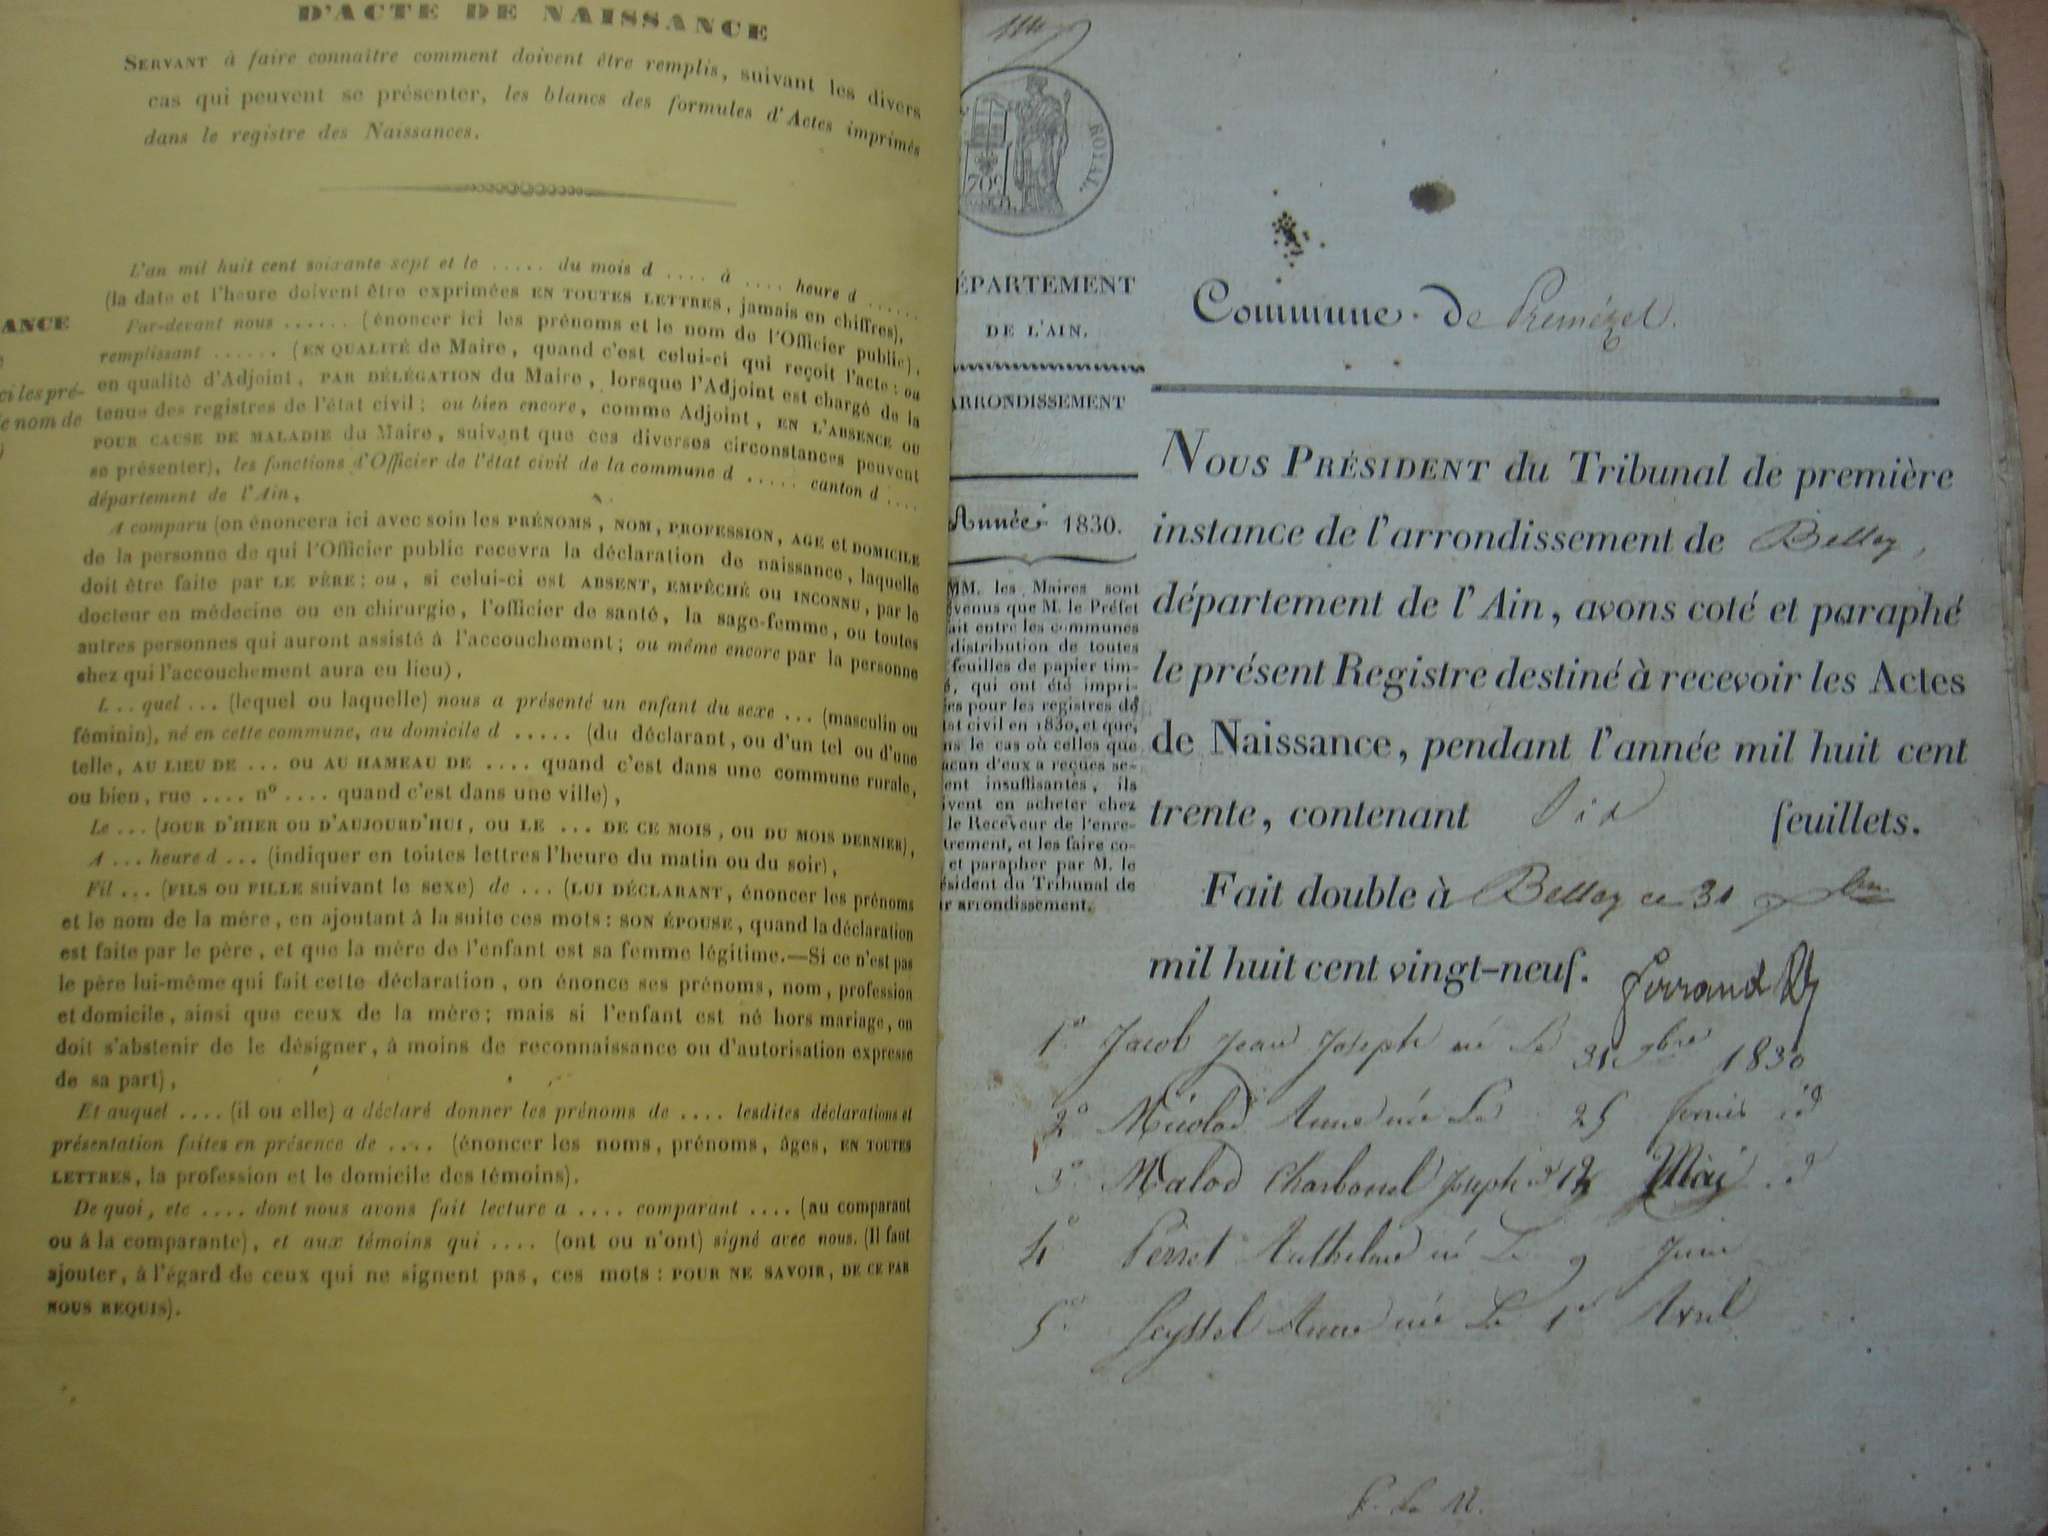 D'ACTE DE NAISSANCE
SERVANT à faire connaître comment doivent être remplis, suivant les divers
cas qui peuvent se présenter, les blancs des formules d'Actes imprimés
dans le registre des Naissances.
L'an mil huit cent soixante sept et le ..... du mois d .... à .... heure d ......
(la date et l'heure doivent être exprimées EN TOUTES LETTRES, jamais en chiffres),
Par-devant nous ...... (énoncer ici les prénoms et le nom de l'Officier public),
remplissant ...... (EN QUALITÉ de Maire, quand c'est celui-ci qui reçoit l'acte: ou
en qualité d'Adjoint, PAR DÉLÉGATION du Maire, lorsque l'Adjoint est chargé de la
tenue des registres de l'état civil; ou bien encore, comme Adjoint, EN L'ABSENCE OU
POUR CAUSE DE MALADIE du Maire, suivant que ces diverses circonstances peuvent
se présenter), les fonctions d'Officier de l'état civil de la commune d ..... canton d ....
département de l'Ain,
A comparu (on énoncera ici avec soin les PRÉNOMS, NOM, PROFESSION, AGE et DOMICILE
de la personne de qui l'Officier public recevra la déclaration de naissance, laquelle
doit être faite par LE PÈRE: ou, si celui-ci est ABSENT, EMPÊCHÉ OU INCONNU, par le
docteur en médecine ou en chirurgie, l'officier de santé, la sage-femme, ou toutes
autres personnes qui auront assisté à l'accouchement; ou même encore par la personne
chez qui l'accouchement aura eu lieu),
L...quel ... (lequel ou laquelle) nous a présenté un enfant du sexe ... (masculin ou
féminin), né en cette commune, au domicile d ..... (du déclarant, ou d'un tel ou d'une
telle, AU LIEU DE ... ou AU HAMEAU DE .... quand c'est dans une commune rurale,
ou bien, rue .... nº .... quand c'est dans une ville),
Le ... (JOUR D'HIER ou D'AUJOURD'HUI, OU LE ... DE CE MOIS, OU DU MOIS DERNIER),
A ... heure d ... (indiquer en toutes lettres l'heure du matin ou du soir),
Fil ... (FILS ou FILLE suivant le sexe) de ... (LUI DÉCLARANT, énoncer les prénoms
et le nom de la mère, en ajoutant à la suite ces mots: SON ÉPOUSE, quand la déclaration
est faite par le père, et que la mère de l'enfant est sa femme légitime.—Si ce n'est pas
le père lui-même qui fait cette déclaration, on énonce ses prénoms, nom, profession
et domicile, ainsi que ceux de la mère; mais si l'enfant est né hors mariage, on
doit s'abstenir de le désigner, à moins de reconnaissance ou d'autorisation expresse
de sa part),
Et auquel .... (il ou elle) a déclaré donner les prénoms de .... lesdites déclarations et
présentation faites en présence de .... (énoncer les noms, prénoms, âges, EN TOUTES
LETTRES, la profession et le domicile des témoins).
De quoi, etc .... dont nous avons fait lecture a .... comparant .... (au comparant
ou à la comparante), et aux témoins qui .... (ont ou n'ont) signé avec nous. (Il faut
ajouter, à l'égard de ceux qui ne signent pas, ces mots: POUR NE SAVOIR, DE CE PAR
NOUS REQUIS).
ANCE
ci les pré-
e nom de
ROYAL.
ÉPARTEMENT
DE L'AIN.
ARRONDISSEMENT
Année 1830.
MM. les Maires sont
evenus que M. le Préfet
ait entre les communes
distribution de toutes
feuilles de papier tim-
é, qui ont été impri-
es pour les registres de
tat civil en 1830, et que,
ns le cas où celles que
acun d'eux a reçues se-
ent insuffisantes, ils
ivent en acheter chez
le Receveur de l'enre-
trement, et les faire co-
et parapher par M. le
ésident du Tribunal de
r arrondissement.
Commune de Premézel.
NOUS PRÉSIDENT du Tribunal de première
instance de l'arrondissement de Belley,
département de l'Ain, avons coté et paraphé
le présent Registre destiné à recevoir les Actes
de Naissance, pendant l'année mil huit cent
trente, contenant six feuillets.
Fait double à Belley ce 31 xbre
mil huit cent vingt-neuf. Ferrand
1º Jacob Jean Joseph né le 31 xbre 1830
2º Micolod Anne née le 25 fevrier id
3º Malod Charbonel Joseph 12 Mai id
4º Perret Anthelme né le 9 Juin
5º Seyssel Anne née le 1er Avril